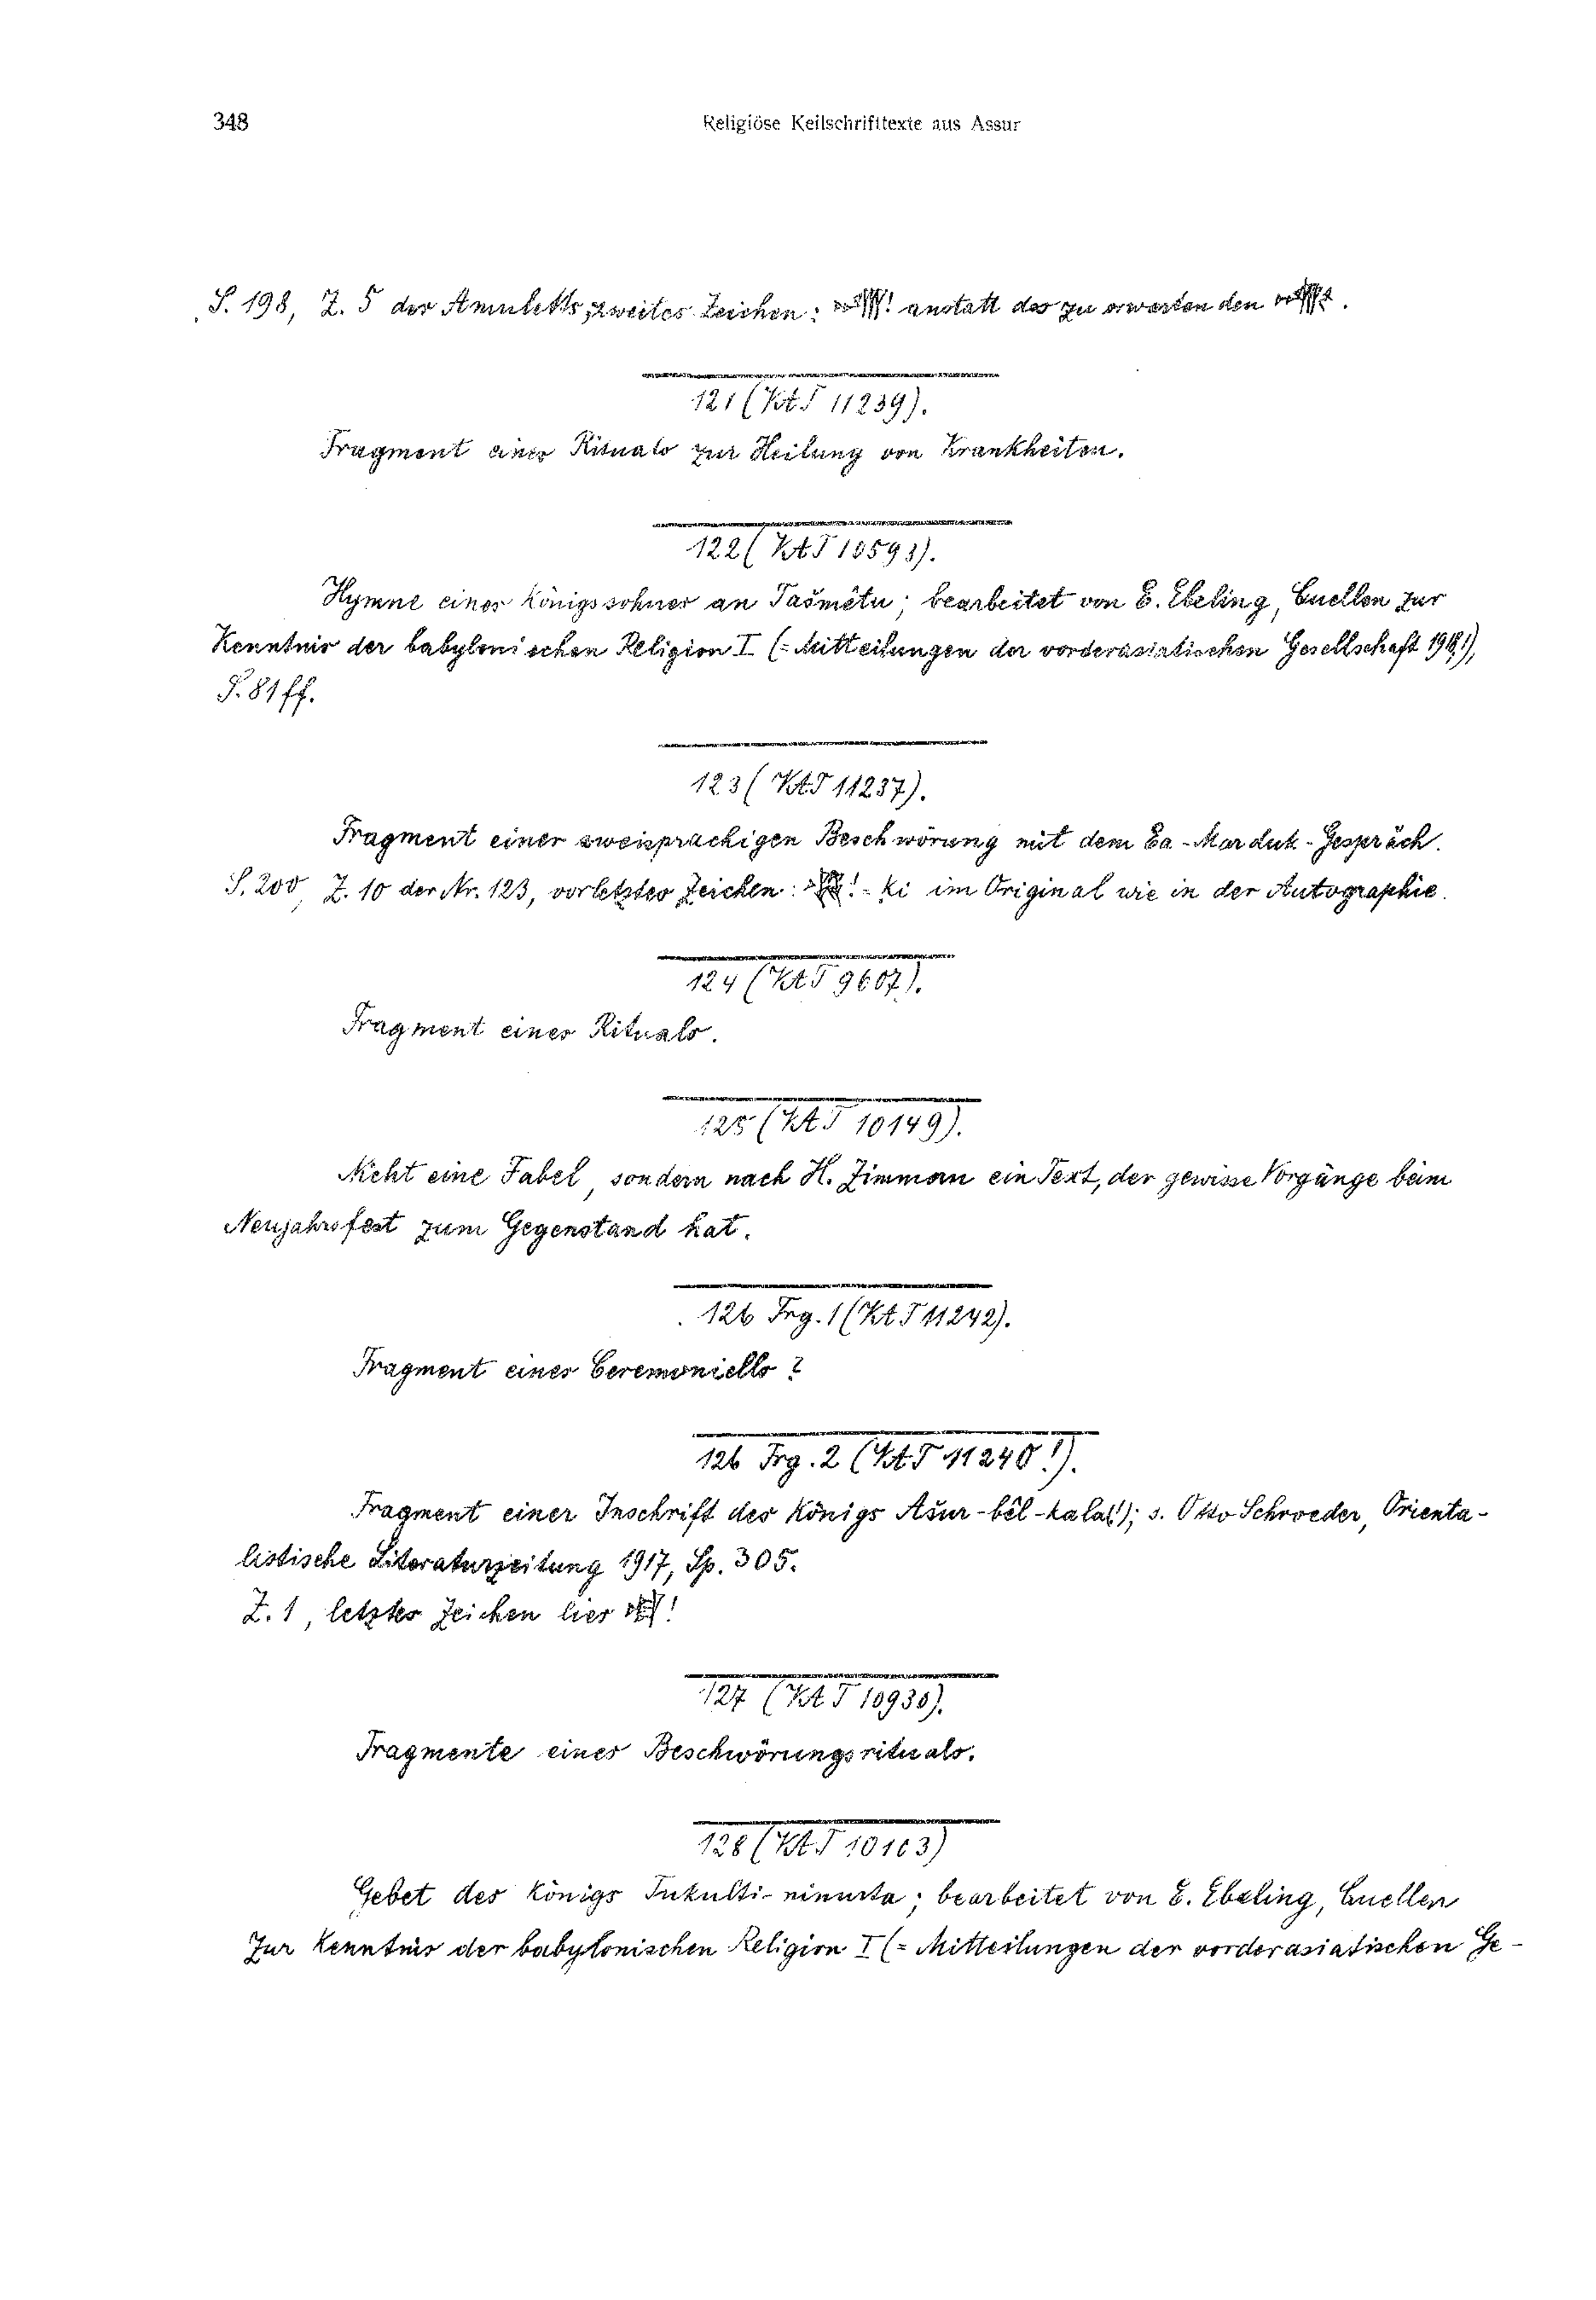 348
Religiöse Keilschrifttexte aus Assur
S. 198, Z. 5 des Amuletts, zweites Zeichen: ! anstatt des zu erwartenden .
121 (VAT 11239).
Fragment eines Rituals zur Heilung von Krankheiten.
122 (VAT 10593).
Hymne eines Königssohnes an Tašmêtu; bearbeitet von E. Ebeling, Quellen zur
Kenntnis der babylonischen Religion I (= Mitteilungen der vorderasiatischen Gesellschaft 1918,1),
S. 81 ff.
123 (VAT 11237).
Fragment einer zweisprachigen Beschwörung mit dem Ea-Marduk-Gespräch.
S. 200, Z. 10 der Nr. 123, vorletztes Zeichen: ! = ki im Original wie in der Autographie.
124 (VAT 9607).
Fragment eines Rituals.
125 (VAT 10149).
Nicht eine Fabel, sondern nach H. Zimmern ein Text, der gewisse Vorgänge beim
Neujahrsfest zum Gegenstand hat.
126 Frg. 1 (VAT 11242).
Fragment eines Ceremoniells?
126 Frg. 2 (VAT 11240!).
Fragment einer Inschrift des Königs Ašur-bêl-kala(!); s. Otto Schroeder, Orienta-
listische Literaturzeitung 1917, Sp. 305.
Z. 1, letztes Zeichen lies !
127 (VAT 10930).
Fragmente eines Beschwörungsrituals.
128 (VAT 10103)
Gebet des Königs Tukulti-ninurta; bearbeitet von E. Ebeling, Quellen
zur Kenntnis der babylonischen Religion I (= Mitteilungen der vorderasiatischen Ge-